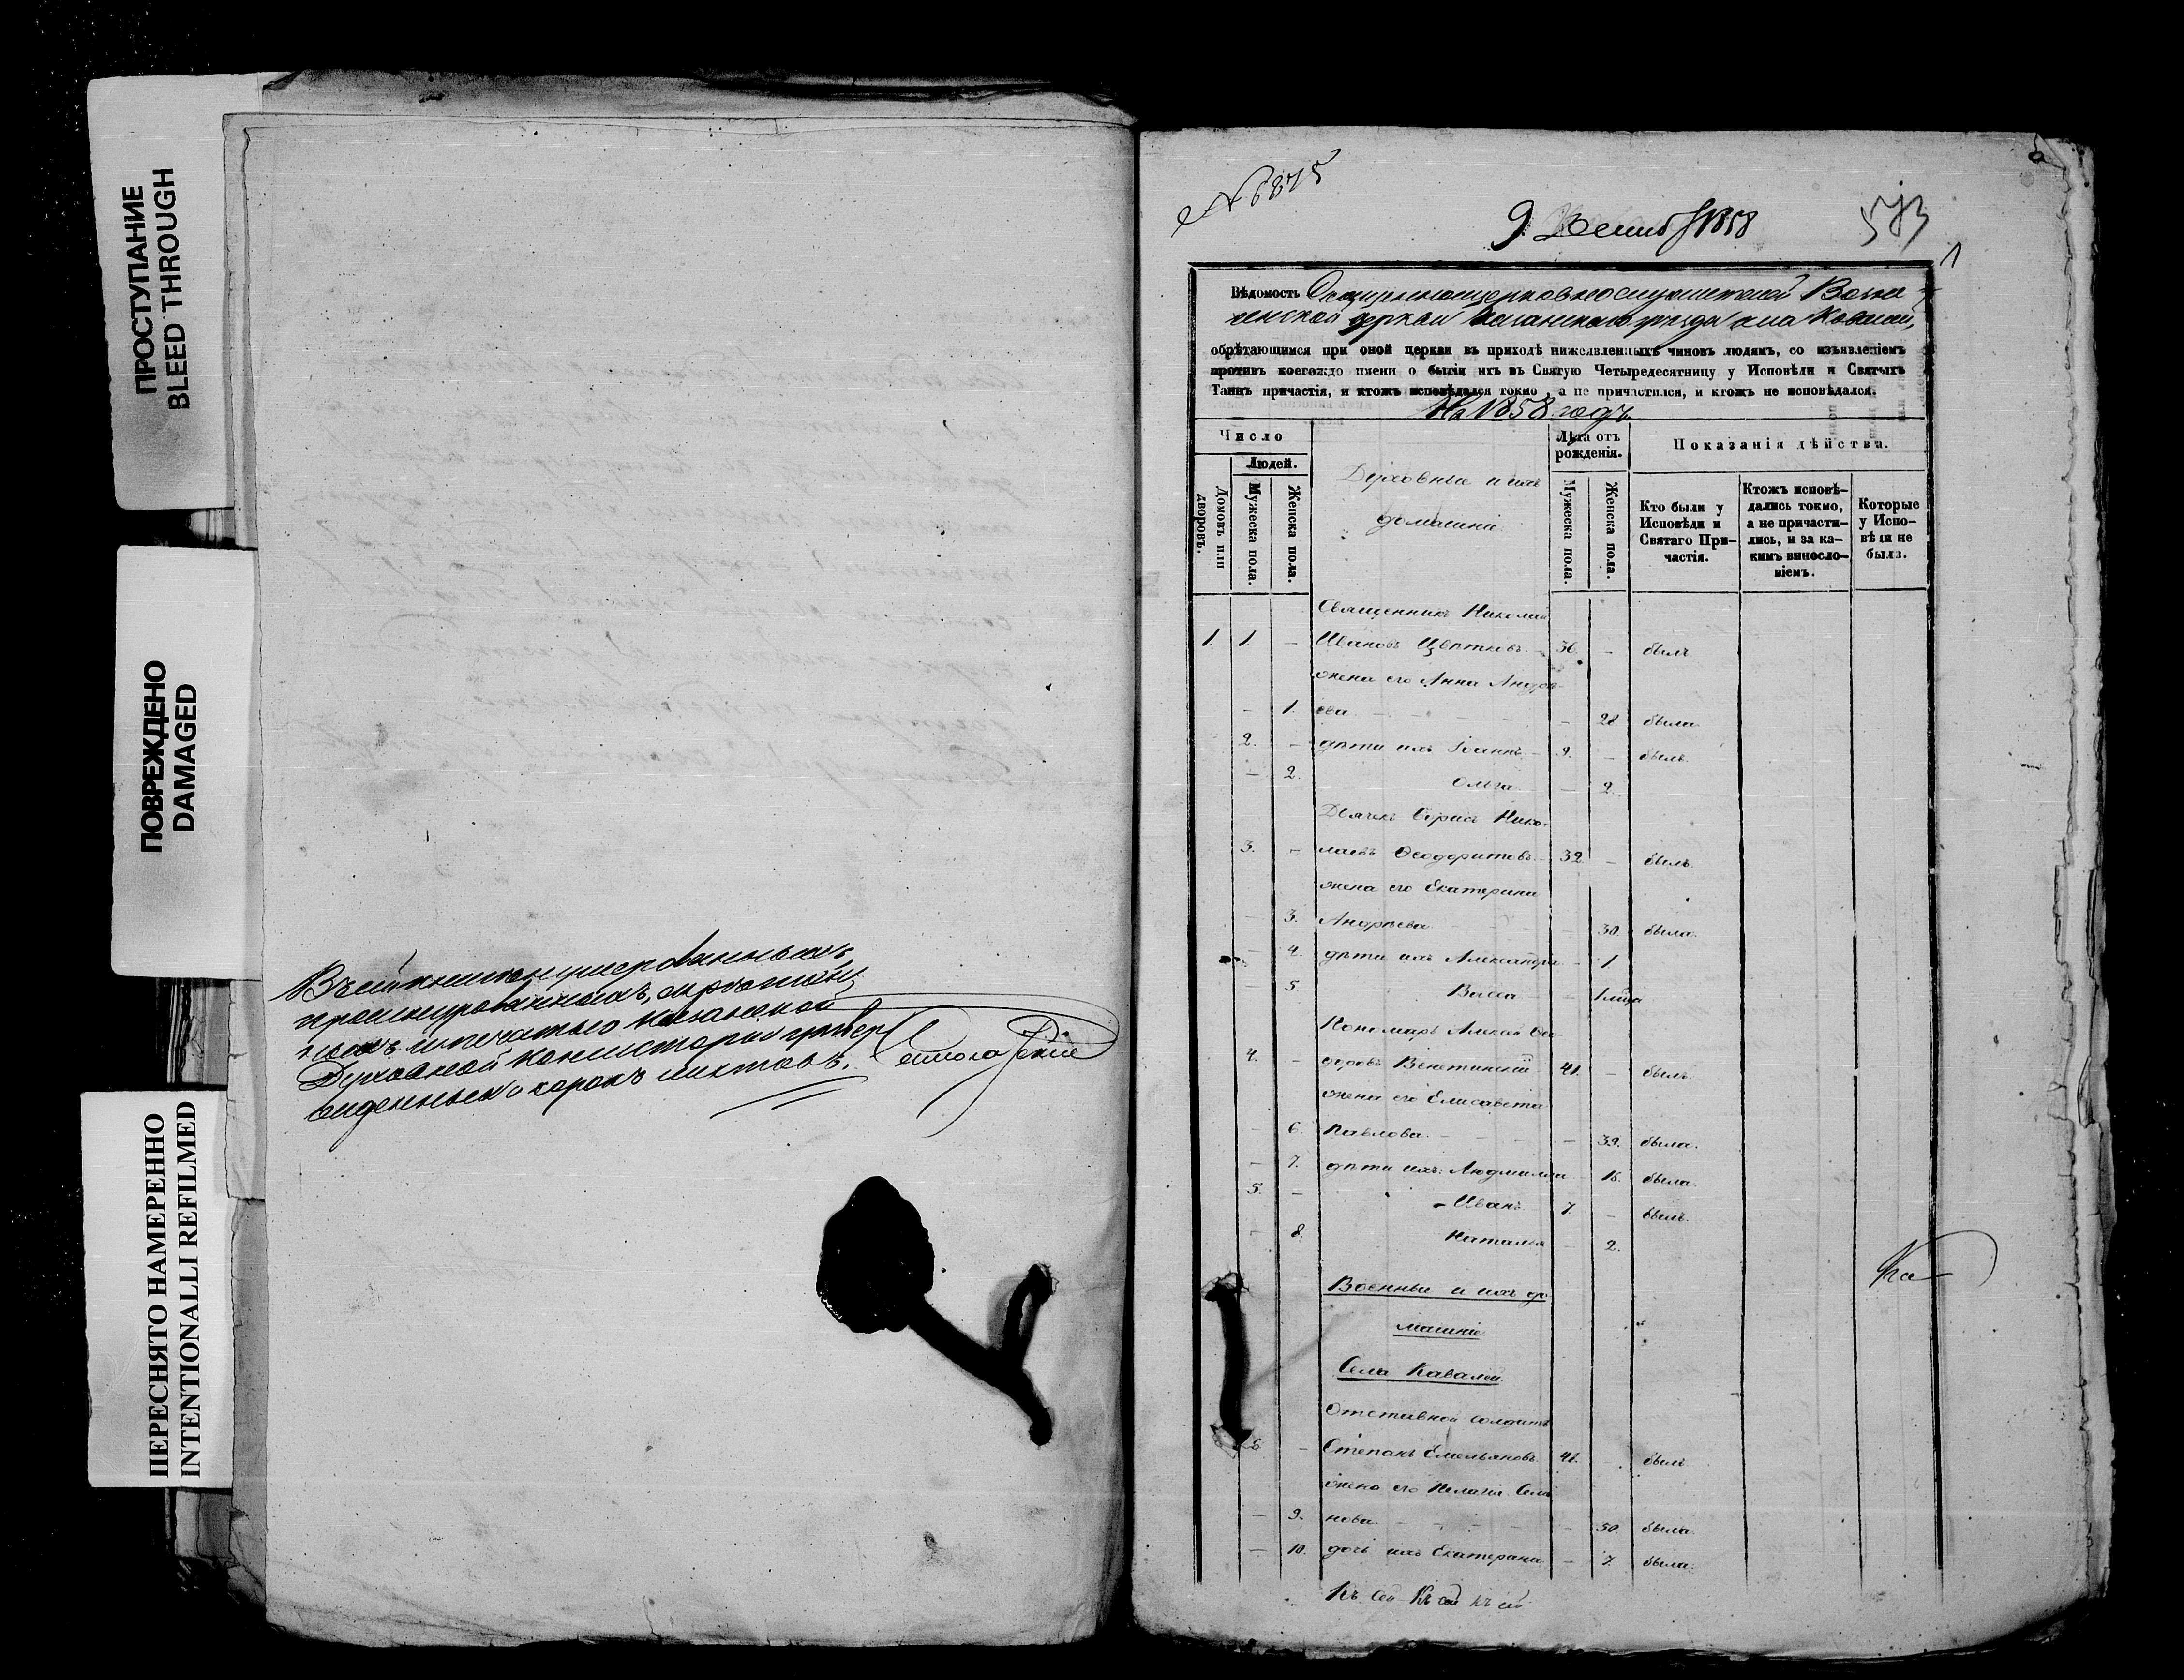 ПРОСТУПАНИЕ
BLEED THROUGH
ПОВРЕЖДЕНО
DAMAGED
ПЕРЕСНЯТО НАМЕРЕННО
INTENTIONALLI REFILMED
Въ сей книге нумерованныхъ,
прошнурованныхъ, скрепъ
ныхъ и печатью Казанской
Духовной Консисторіи утвер
жденныхъ сорокъ листовъ.
№ 6875
9 1858
573
1
Вѣдомость церкви Казанскаго уѣзда села Ковалей,
обрѣтающимся при оной церкви въ приходѣ нижеявленныхъ чиновъ людямъ, со изъявленіемъ
противъ коегождо имени о бытіи ихъ въ Святую Четыредесятницу у Исповѣди и Святыхъ
Таинъ причастія, и ктожъ исповѣдался токмо, а не причастился, и ктожъ не исповѣдался.
На 1858 годъ.
Число
Людей.
Домовъ или дворовъ.
Мужеска пола.
Женска пола.
Духовные и ихъ
домашніе
Лѣта отъ рожденія.
Мужеска пола.
Женска пола.
Показанія дѣйства.
Кто были у Исповѣди и Святаго Причастія.
Ктожъ исповѣдались токмо, а не причастились, и за какимъ винословіемъ.
Которые у Исповѣди не были.
Священникъ Николай
1. 1. – Ивановъ Цвѣтковъ – 36. – былъ
жена его Анна Андре-
– 1. ева – – 28 была
2. – дѣти ихъ Іоаннъ – 9. – былъ
– 2. Ольга – 2.
Дьячекъ Борисъ Нико-
3. – лаевъ Ѳеодоритовъ – 32. – былъ
жена его Екатерина
– 3. Андреева 30. была
– 4. дѣти ихъ Александра – 1.
– 5. Васса –
Пономарь Алексѣй Ѳео-
4. – доровъ Венетинскій 41. – былъ
жена его Елисавета
– 6. Павлова. – – 39. была.
– 7. дѣти ихъ: Людмилла 15. была
5. – Иванъ 7. – былъ
– 8. Наталья – 2.
Военные и ихъ до
машніе
Села Кавалей.
Отставной солдатъ
6. – Степанъ Емельяновъ 41. былъ
жена его Пелагія Семе
– 9. нова – 50. была
– 10. дочь ихъ Екатерина – 7. была
Къ сей Къ сей Къ сей